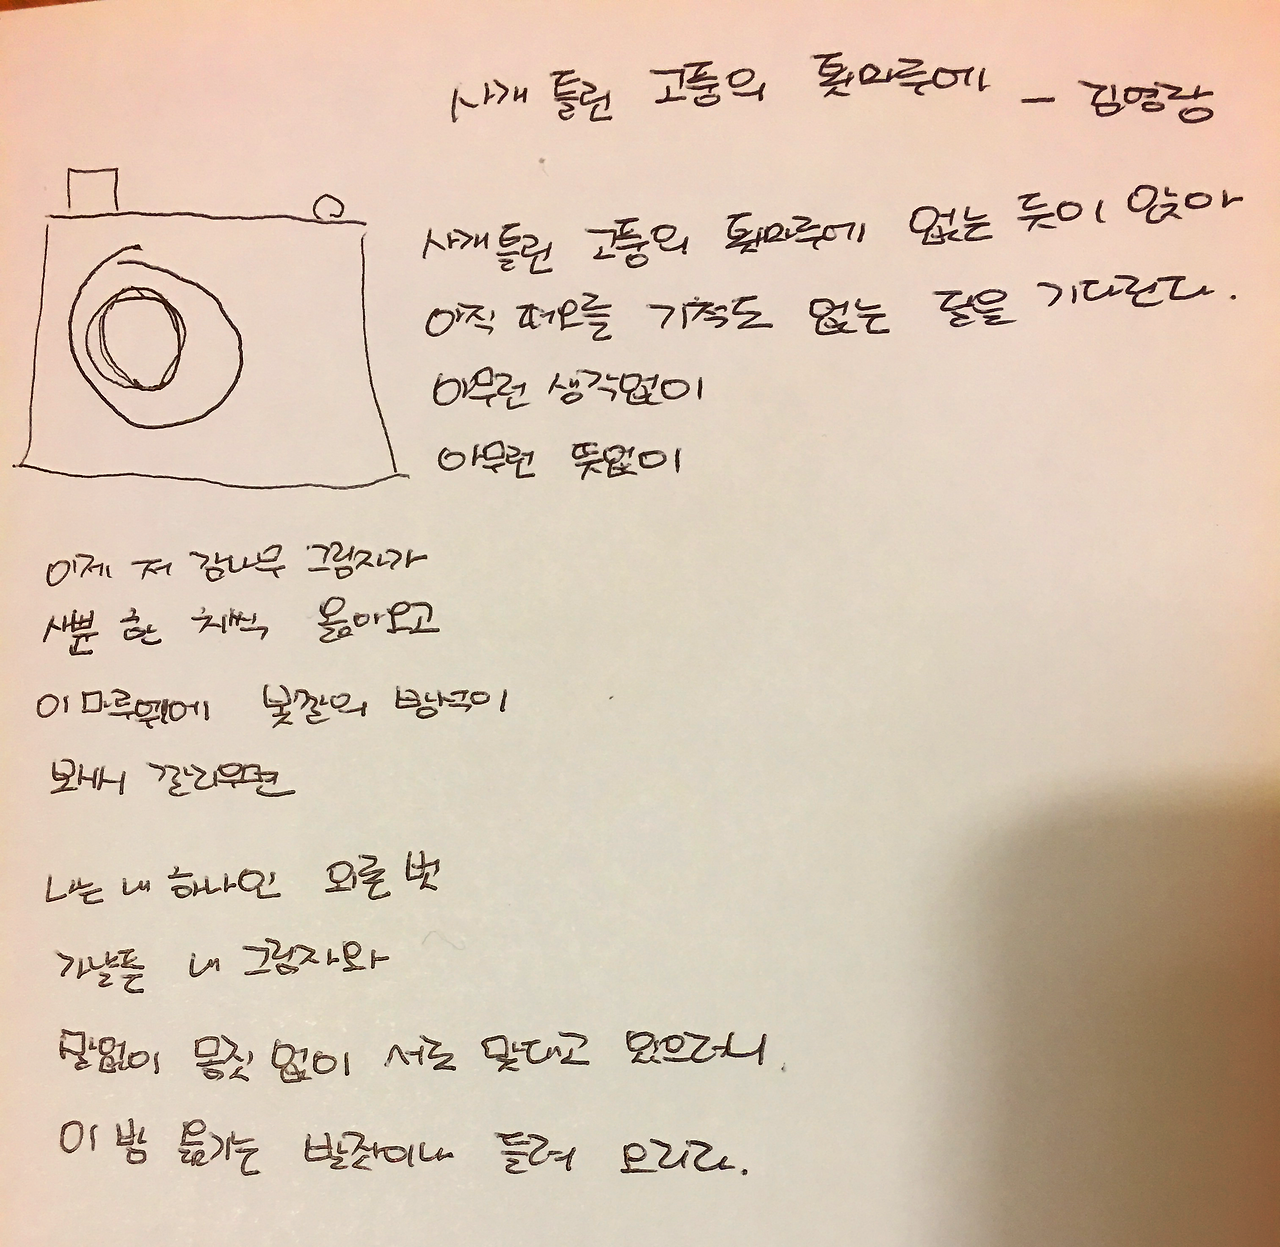 사개 틀린 고풍의 툇마루에 - 김영랑
사개틀린 고풍의 툇마루에 없는 듯이 앉아
아직 떠오를 기척도 없는 달을 기다린다.
아무런 생각없이
아무런 뜻없이
이제 저 감나무 그림자가
사뿐 한 치씩 옮아오고
이 마루위에 빛깔의 방석이
보시시 깔리우면
나는 내 하나인 외론 벗
가냘픈 내 그림자와
말없이 몸짓 없이 서로 맞대고 있으려니
이 밤 옮기는 발짓이나 들려 오리라.